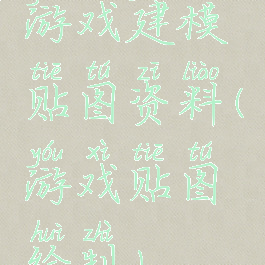 游戏建模
tiē tú zī liào
贴图资料(
yóu xì tiē tú
游戏贴图
huì zhì
绘制)